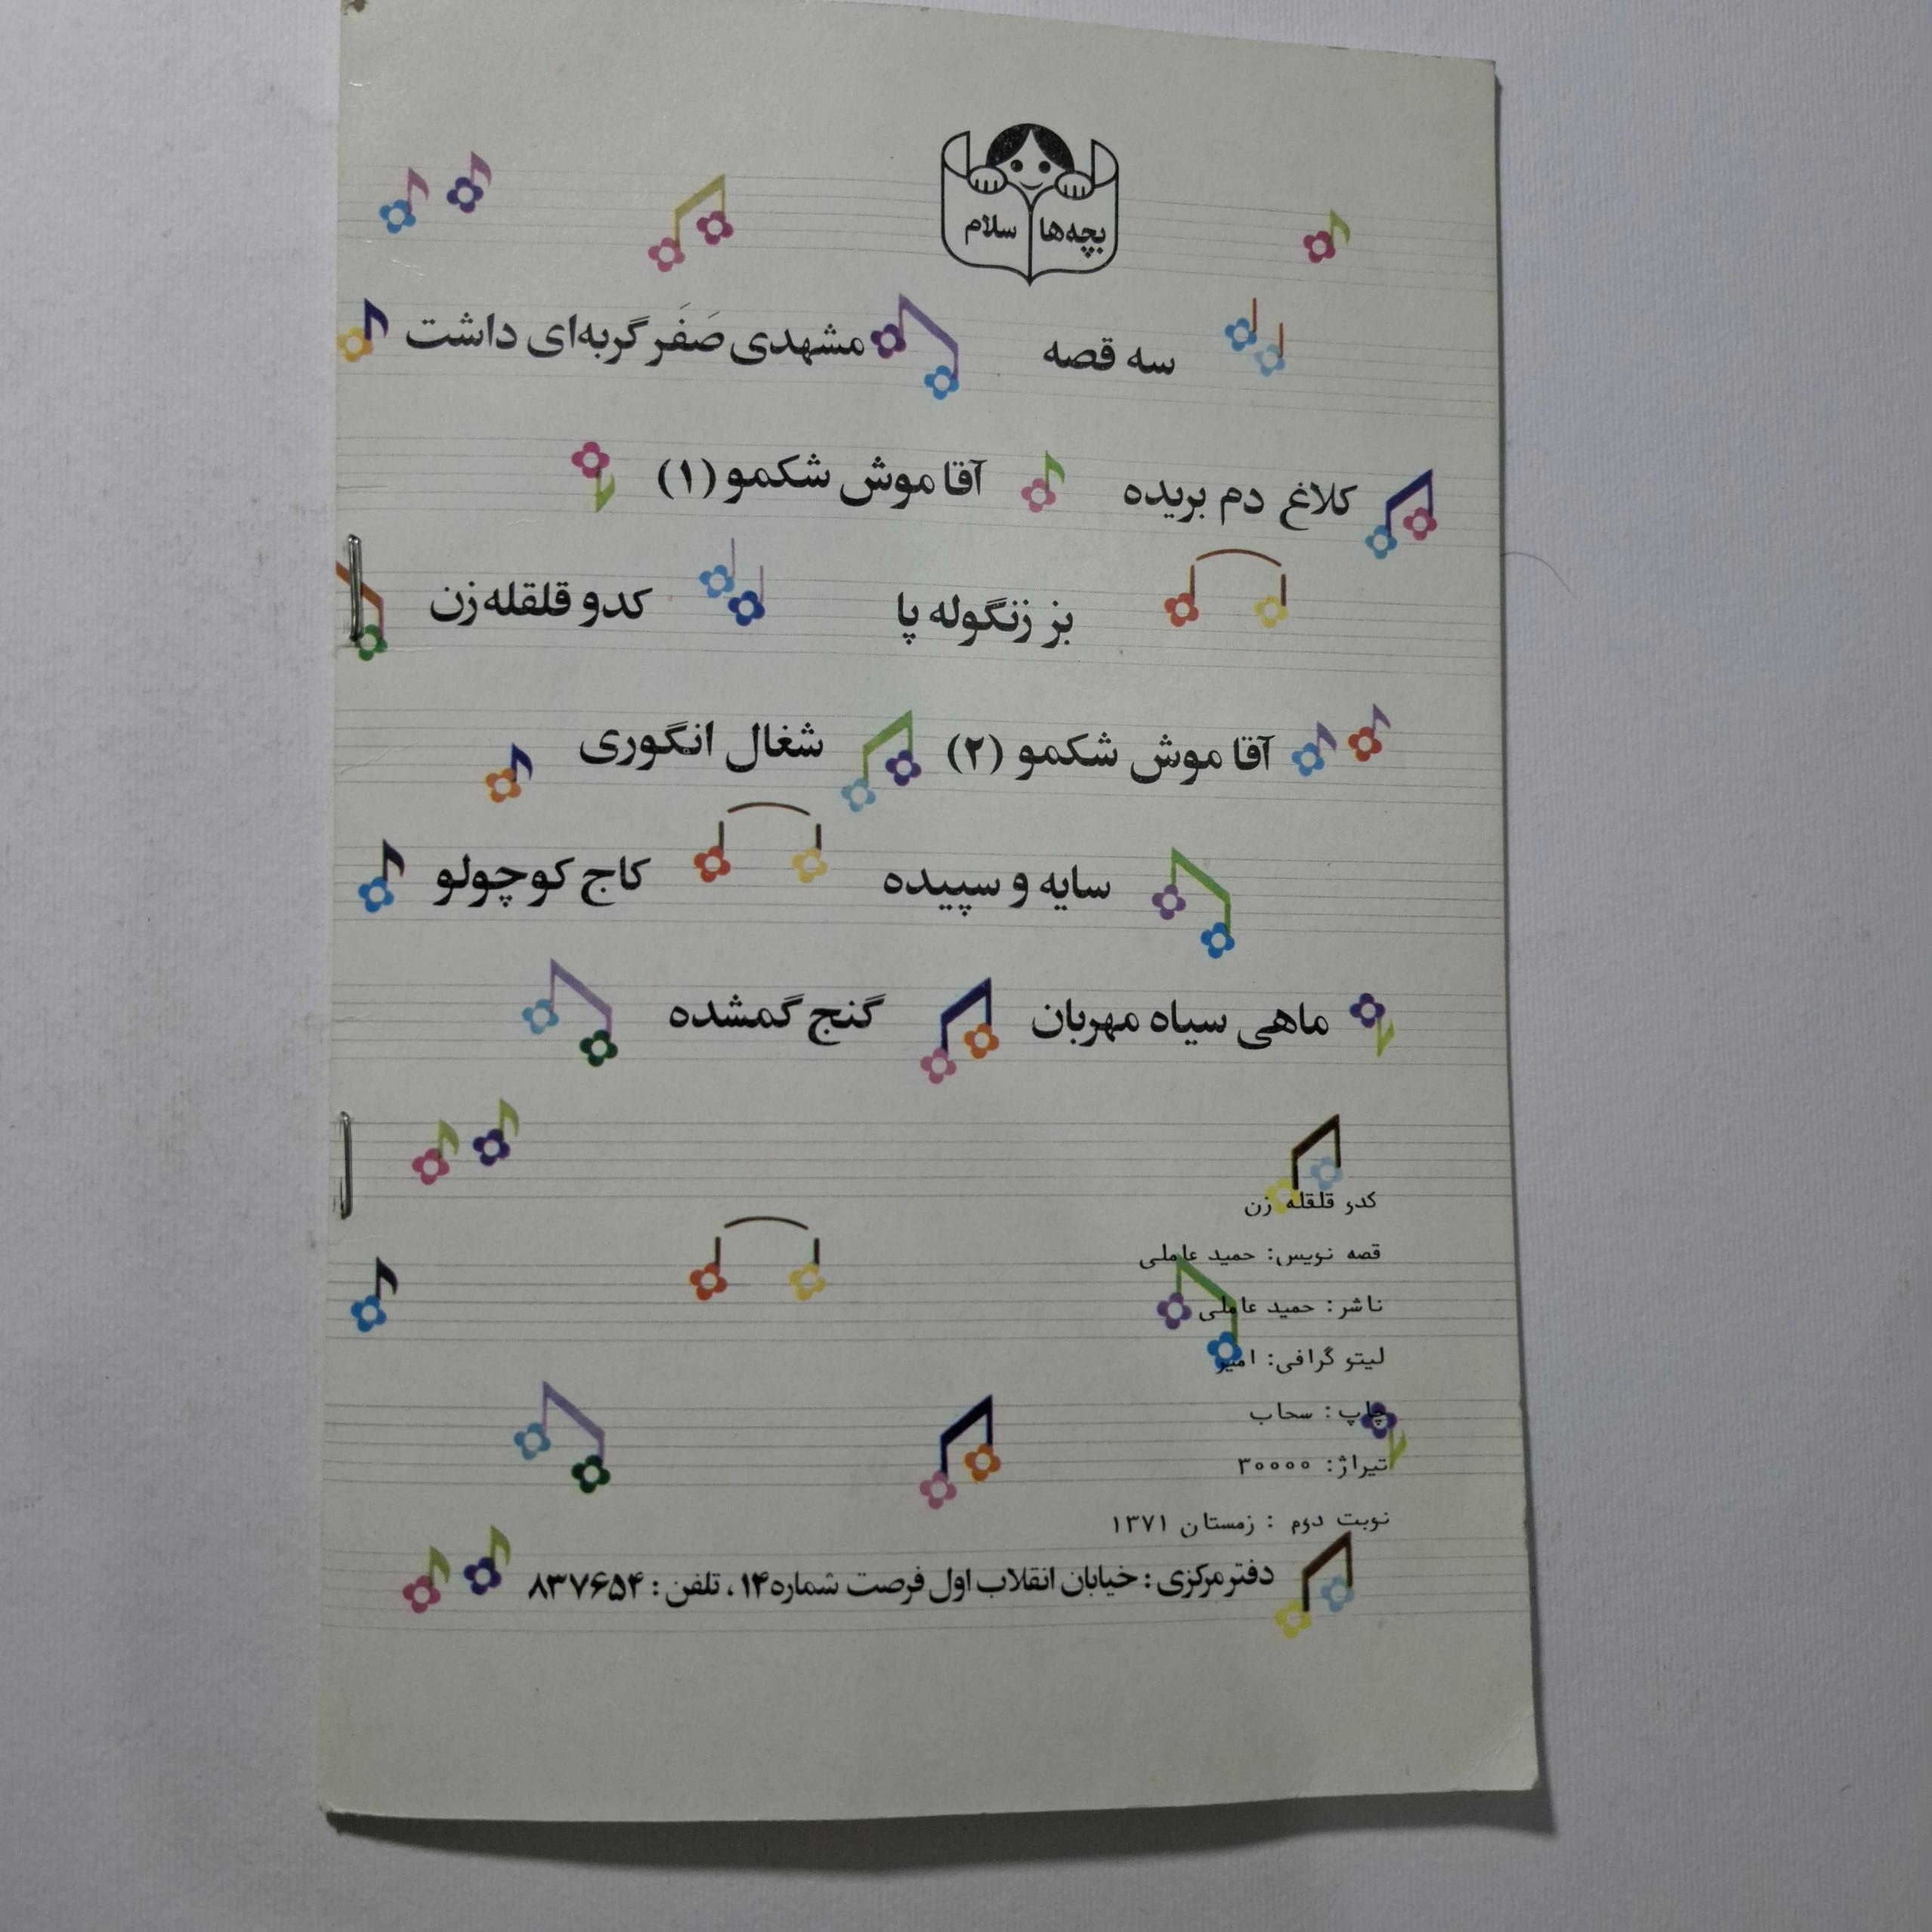 بچه‌ها سلام
سه قصه مشهدی صَفَر گربه‌ای داشت
کلاغ دم بریده آقا موش شکمو (۱)
بز زنگوله پا کدو قلقله‌زن
آقا موش شکمو (۲) شغال انگوری
سایه و سپیده کاج کوچولو
ماهی سیاه مهربان گنج گمشده
کدو قلقله زن
قصه نویس: حمید عاملی
ناشر: حمید عاملی
لیتو گرافی: امیر
چاپ: سحاب
تیراژ: ۳۰۰۰۰
نوبت دوم : زمستان ۱۳۷۱
دفتر مرکزی: خیابان انقلاب اول فرصت شماره ۱۴، تلفن: ۸۳۷۶۵۴